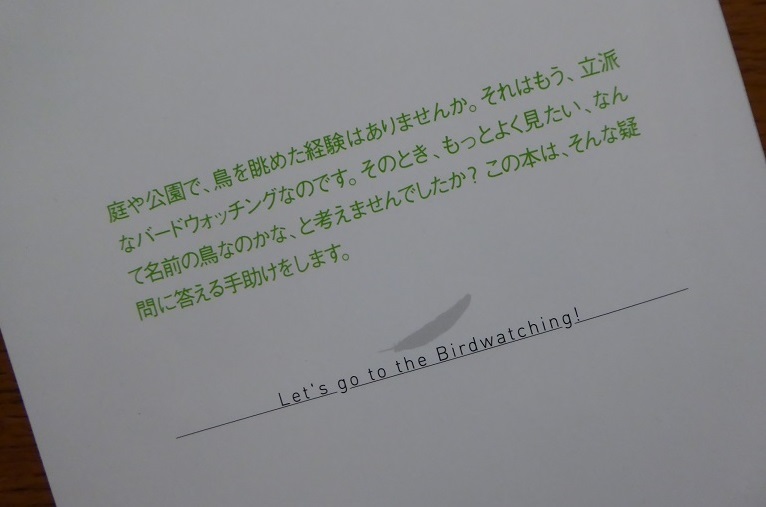 庭や公園で、鳥を眺めた経験はありませんか。それはもう、立派
なバードウォッチングなのです。そのとき、もっとよく見たい、なん
て名前の鳥なのかな、と考えませんでしたか？ この本は、そんな疑
問に答える手助けをします。
Let's go to the Birdwatching!